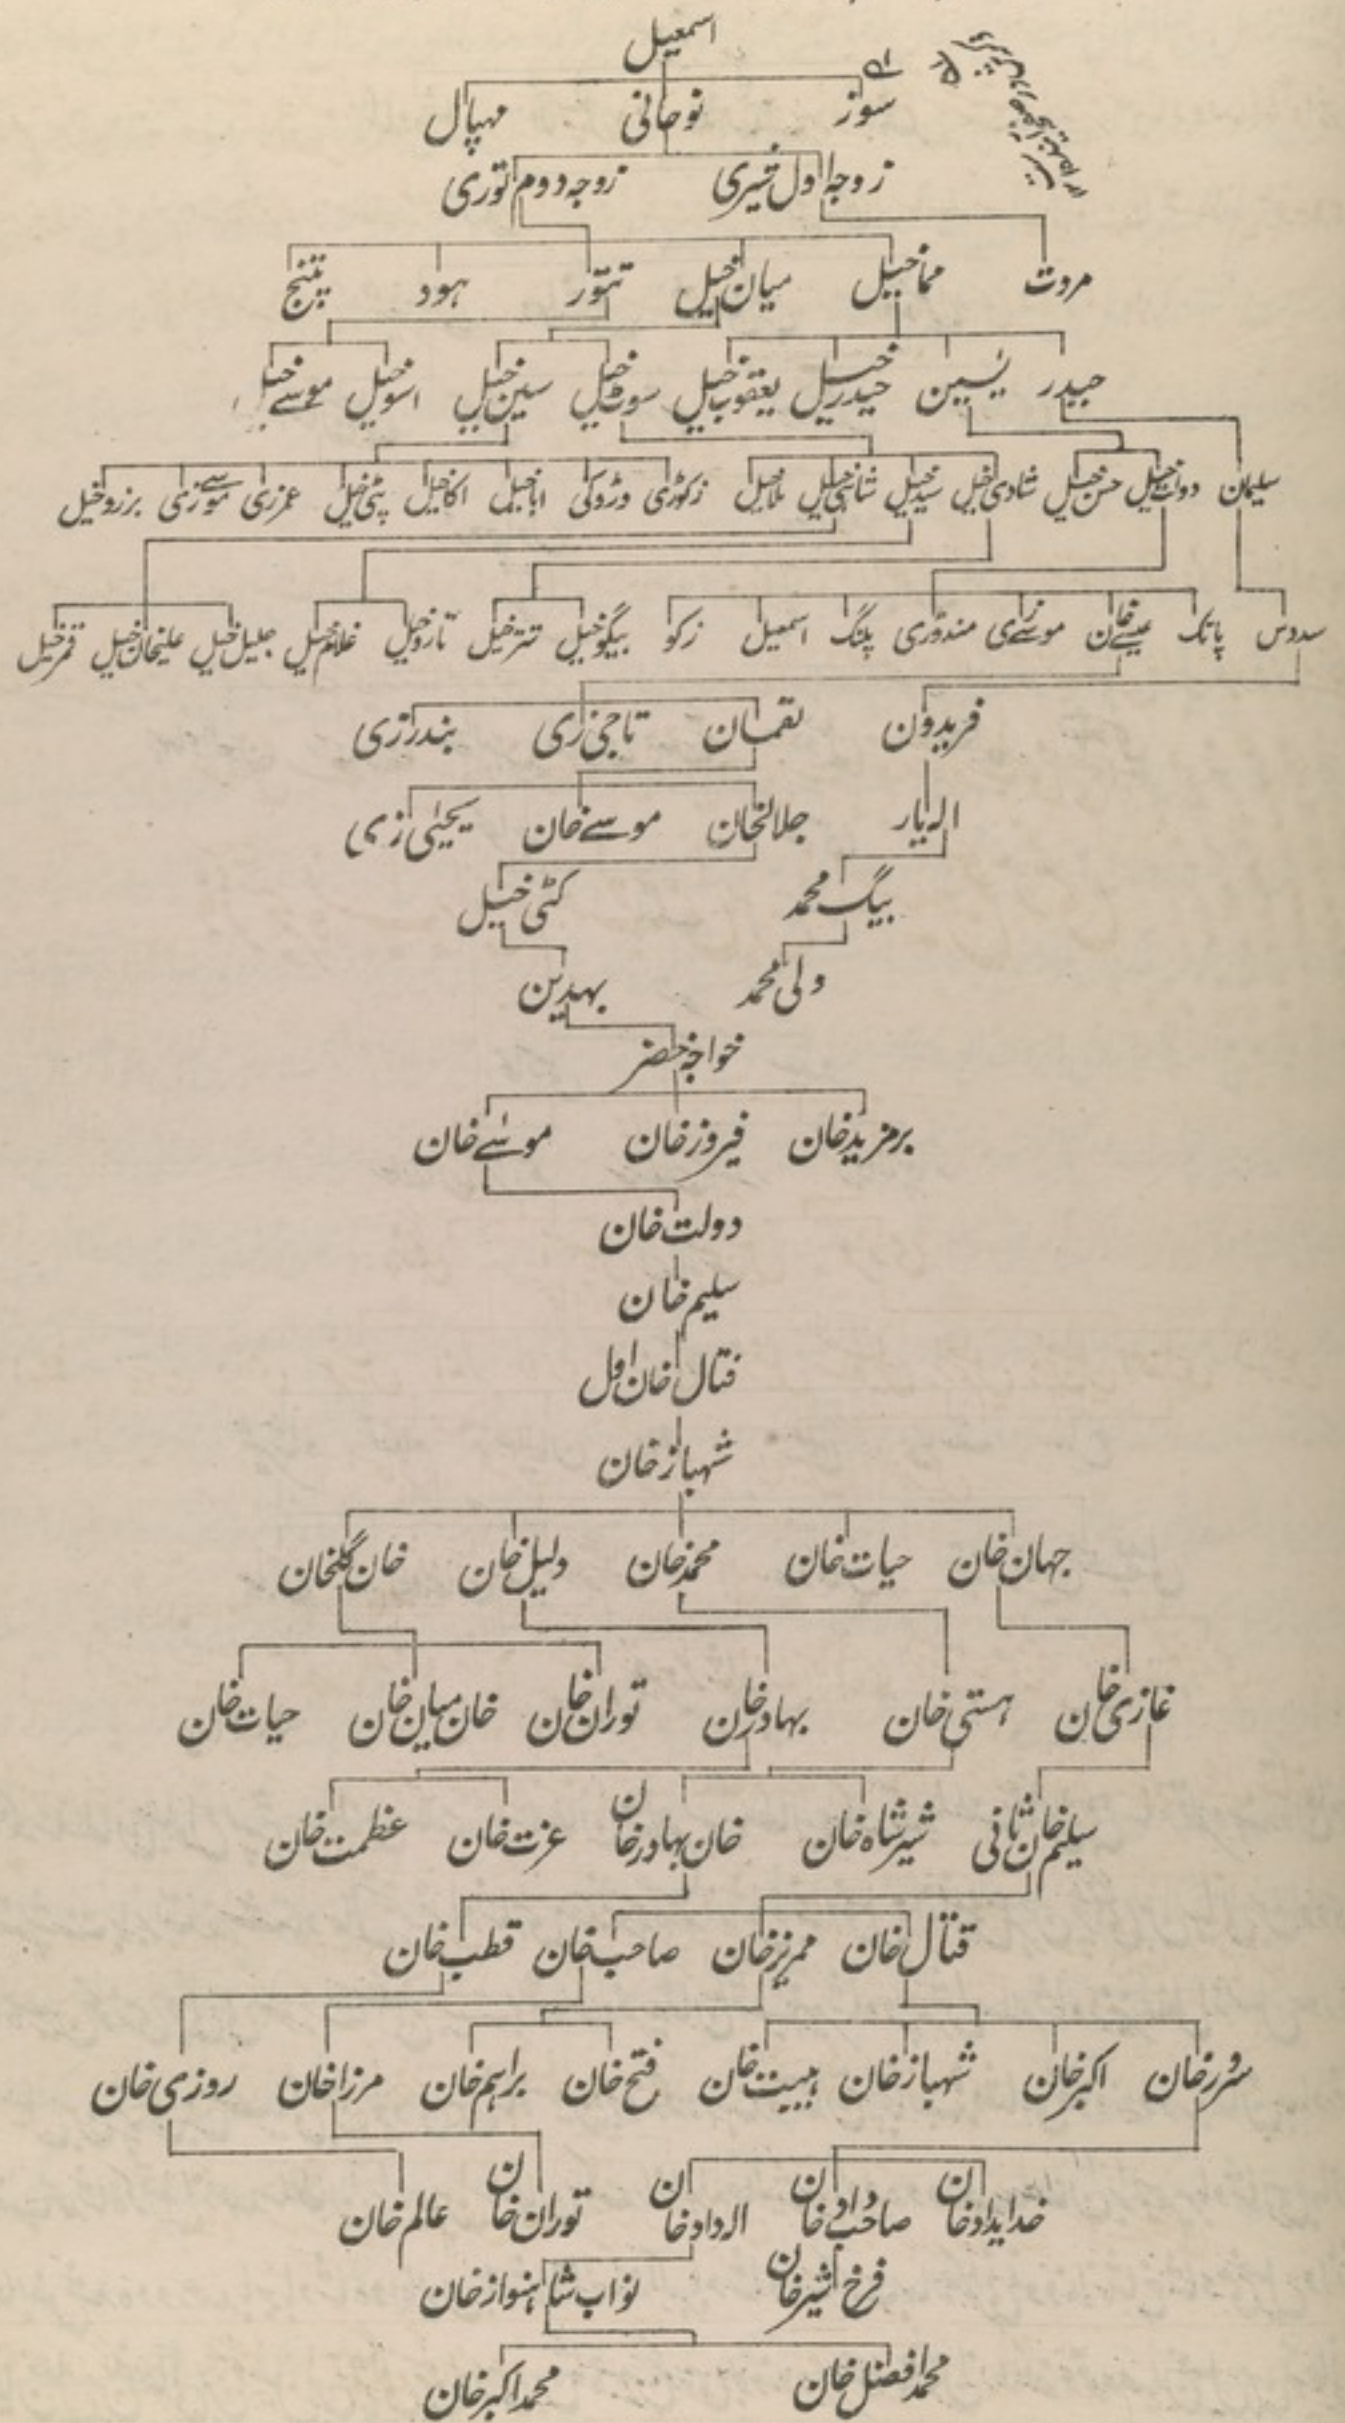 اسمعیل
سوز نوحانی مہپال
زوجہ اول شیری زوجہ دوم توری
مروت مماخیل میان خیل تتور ہود پتنج
حیدر یٰسین حیدرخیل یعقوب خیل سوٹ خیل سین خیل اسوخیل موسے خیل
سلیمان دولت خیل حسن خیل شادی خیل سید خیل شانی خیل ملاخیل زکوڑی وڑوکی اباخیل اکاخیل پٹی خیل عمرزی موسےزی برزوخیل
سدوس پاتک عیسے خان موسےزی مندوزی پلنگ اسمعیل زکو بیگوخیل تترخیل تاروخیل غلام خیل جلیل خیل علیخان خیل قمرخیل
فریدون لقمان تاجی زی بندرزی
الہ یار جلالخان موسے خان یحیٰی زی
بیگ محمد کٹی خیل
ولی محمد بہدین
خواجہ خضر
برمزید خان فیروز خان موسٰے خان
دولت خان
سلیم خان
قتال خان اول
شہباز خان
جہان خان حیات خان محمد خان دلیل خان خان گلخان
غازی خان ہستی خان بہادر خان توران خان خان میان خان حیات خان
سلیم خان ثانی شیر شاہ خان خان بہادر خان عزت خان عظمت خان
قتال خان ممریز خان صاحب خان قطب خان
سرور خان اکبر خان شہباز خان ہیبت خان فتح خان براہم خان مرزا خان روزی خان
خدایداد خان صاحبداد خان الہ داد خان توران خان عالم خان
فرخ شیر خان نواب شاہنواز خان
محمد افضل خان محمد اکبر خان